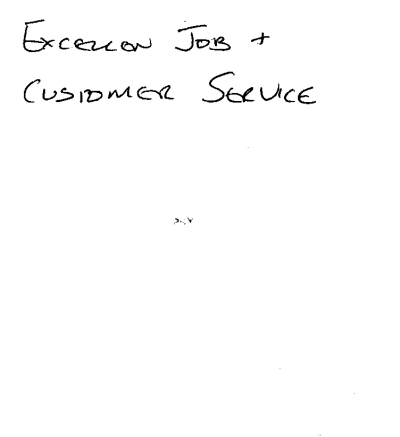 EXCELLON JOB +
CUSTOMER SERVICE